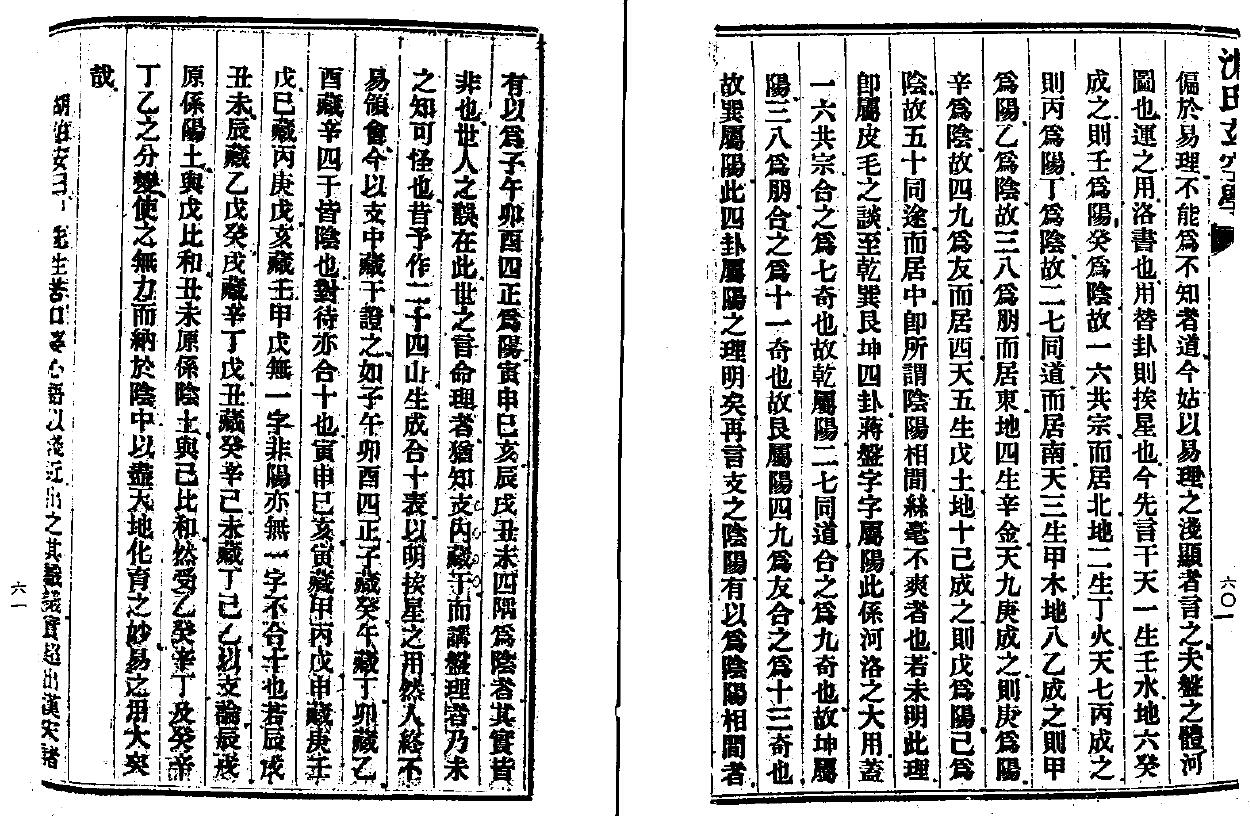 沈氏玄空學
偏於易理不能爲不知者道今姑以易理之淺顯者言之夫盤之體河
圖也運之用洛書也用替卦則挨星也今先言干天一生壬水地六癸
成之則壬爲陽癸爲陰故一六共宗而居北地二生丁火天七丙成之
則丙爲陽丁爲陰故二七同道而居南天三生甲木地八乙成之則甲
爲陽乙爲陰故三八爲朋而居東地四生辛金天九庚成之則庚爲陽
辛爲陰故四九爲友而居西天五生戊土地十己成之則戊爲陽己爲
陰故五十同途而居中卽所謂陰陽相間絲毫不爽者也若未明此理
卽屬皮毛之談至乾巽艮坤四卦蔣盤字字屬陽此係河洛之大用蓋
一六共宗合之爲七奇也故乾屬陽二七同道合之爲九奇也故坤屬
陽三八爲朋合之爲十一奇也故艮屬陽四九爲友合之爲十三奇也
故巽屬陽此四卦屬陽之理明矣再言支之陰陽有以爲陰陽相間者
六〇一
有以爲子午卯酉四正爲陽寅申巳亥辰戌丑未四隅爲陰者其實皆
非也世人之誤在此世之言命理者猶知支內藏干而講盤理者乃未
之知可怪也昔予作二十四山生成合十表以明挨星之用然人終不
易領會今以支中藏干證之如子午卯酉四正子藏癸午藏丁卯藏乙
酉藏辛四干皆陰也對待亦合十也寅申巳亥寅藏甲丙戊申藏庚壬
戊巳藏丙庚戊亥藏壬甲戊無一字非陽亦無一字不合十也若辰戌
丑未辰藏乙戊癸戌藏辛丁戊丑藏癸辛己未藏丁己乙以支論辰戌
原係陽土與戊比和丑未原係陰土與己比和然受乙癸辛丁及癸辛
丁乙之分變使之無力而納於陰中以盡天地化育之妙易之用大矣
哉
胡 生苦口 心語以淺近出之其 議實超出漢宋諸
六一